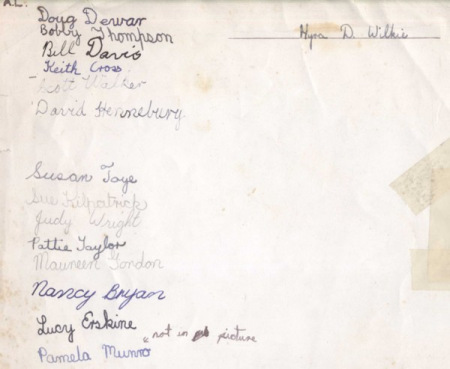 A.L.:
Doug Dewar
Bobby Thompson
Bill Davis
Keith Cross
Scott Walker
David Hennebury
Susan Toye
Sue Kilpatrick
Judy Wright
Pattie Taylor
Maureen Gordon
Nancy Bryan
Lucy Erskine
not in picture
Pamela Munro
D. Wilkie